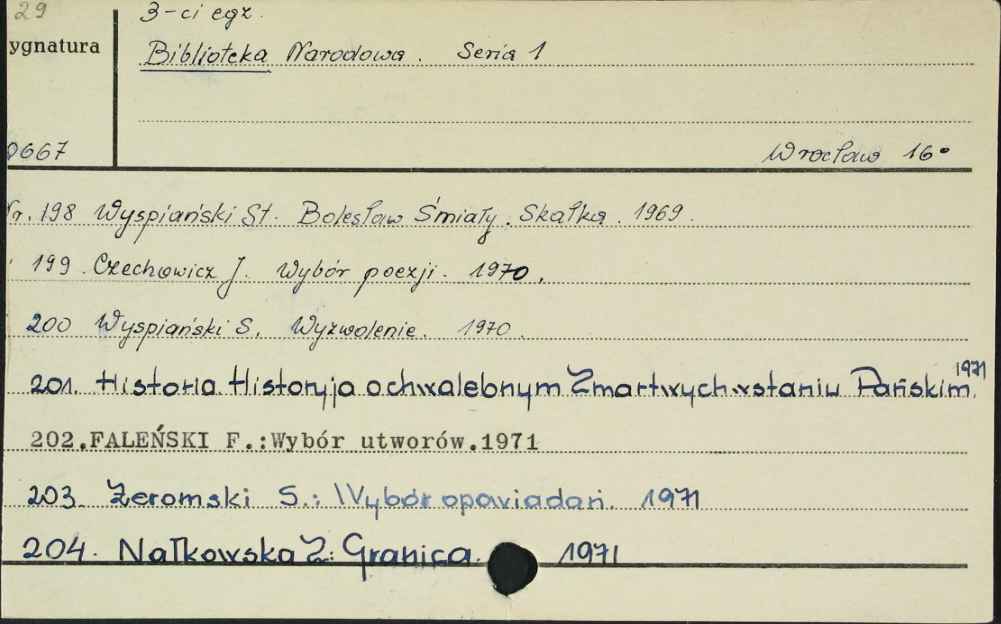 29
3-ci egz.
ygnatura
Biblioteka Narodowa. Seria 1
0667
Wrocław 16°
Nr. 198 Wyspiański St. Bolesław Śmiały. Skałka. 1969.
199. Czechowicz J. Wybór poezji. 1970.
200 Wyspiański S. Wyzwolenie. 1970.
201. Historia. Historyja o chwalebnym Zmartwychwstaniu Pańskim. 1971
202.FALEŃSKI F.:Wybór utworów.1971
203. Żeromski S.: Wybór opowiadań. 1971
204. Nałkowska Z: Granica. 1971